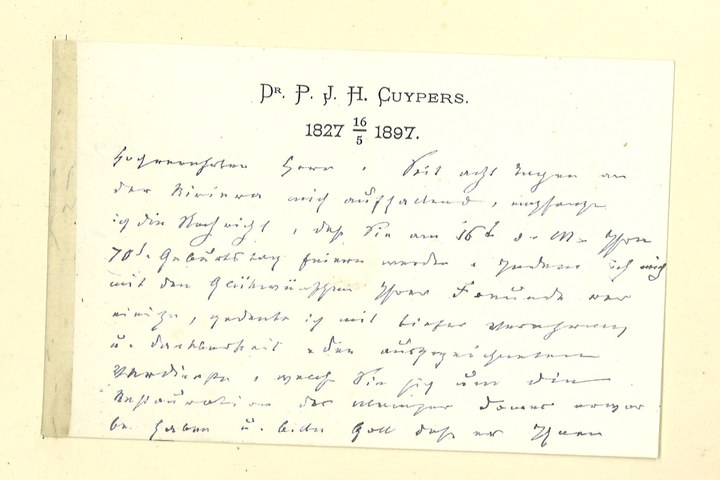 Dr. P. J. H. Cuypers.
1827 16/5 1897.
Hochverehrter Herr. Seit acht Tagen an
der Riviera mich aufhaltend, empfange
ich die Nachricht, daß Sie am 16t d. M. Ihren
70t Geburtstag feiern werden. Indem ich mich
mit den Glückwünschen Ihrer Freunde ver
einige, gedenke ich mit tiefer Verehrung
u. Dankbarkeit der ausgezeichneten
Verdienste, welche Sie sich um die
Restauration des Mainzer Domes erwor
ben haben u. bitte Gott daß er Ihnen